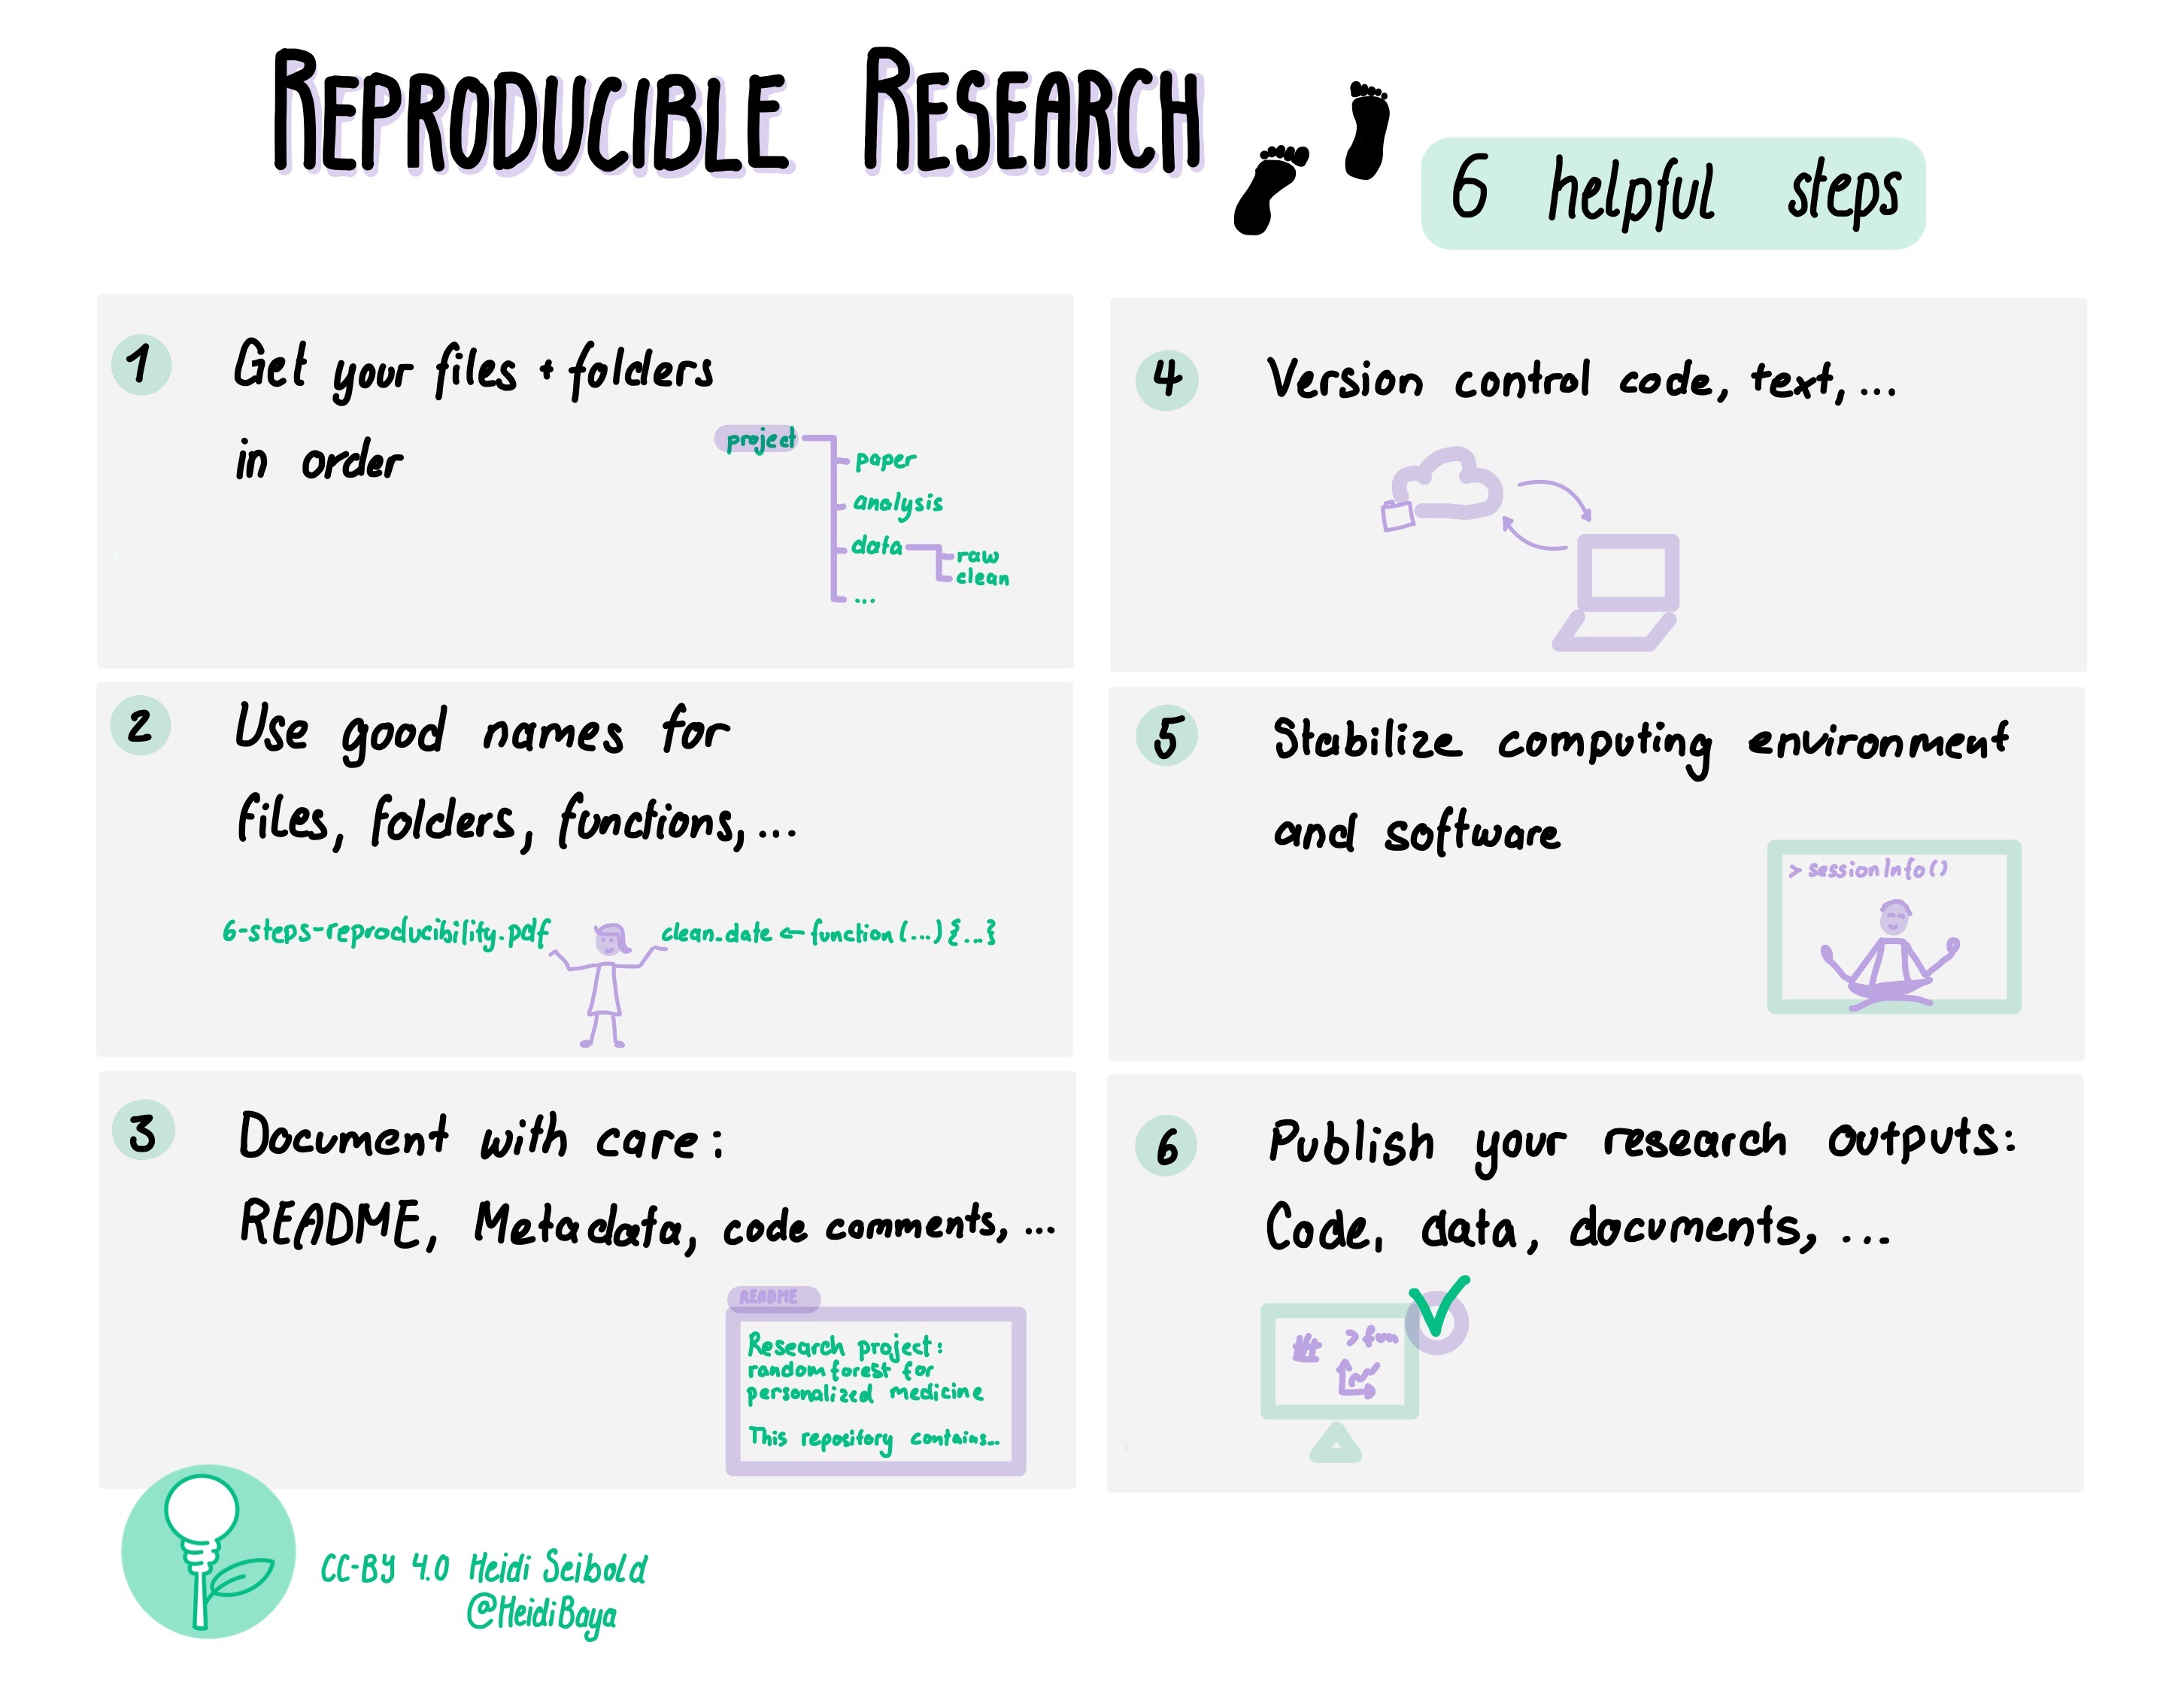 REPRODUCIBLE RESEARCH
6 helpful steps
1
Get your files + folders
in order
project
paper
analysis
data
raw
clean
...
2
Use good names for
files, folders, functions, ...
6-steps-reproducibility.pdf
clean_date <- function (...) {...}
3
Document with care:
README, Metadata, code comments, ...
README
Research project:
random forest for
personalized medicine
This repository contains...
4
Version control code, text, ...
5
Stabilize computing environment
and software
> sessionInfo()
6
Publish your research outputs:
Code, data, documents, ...
CC-BY 4.0 Heidi Seibold
@HeidiBaya